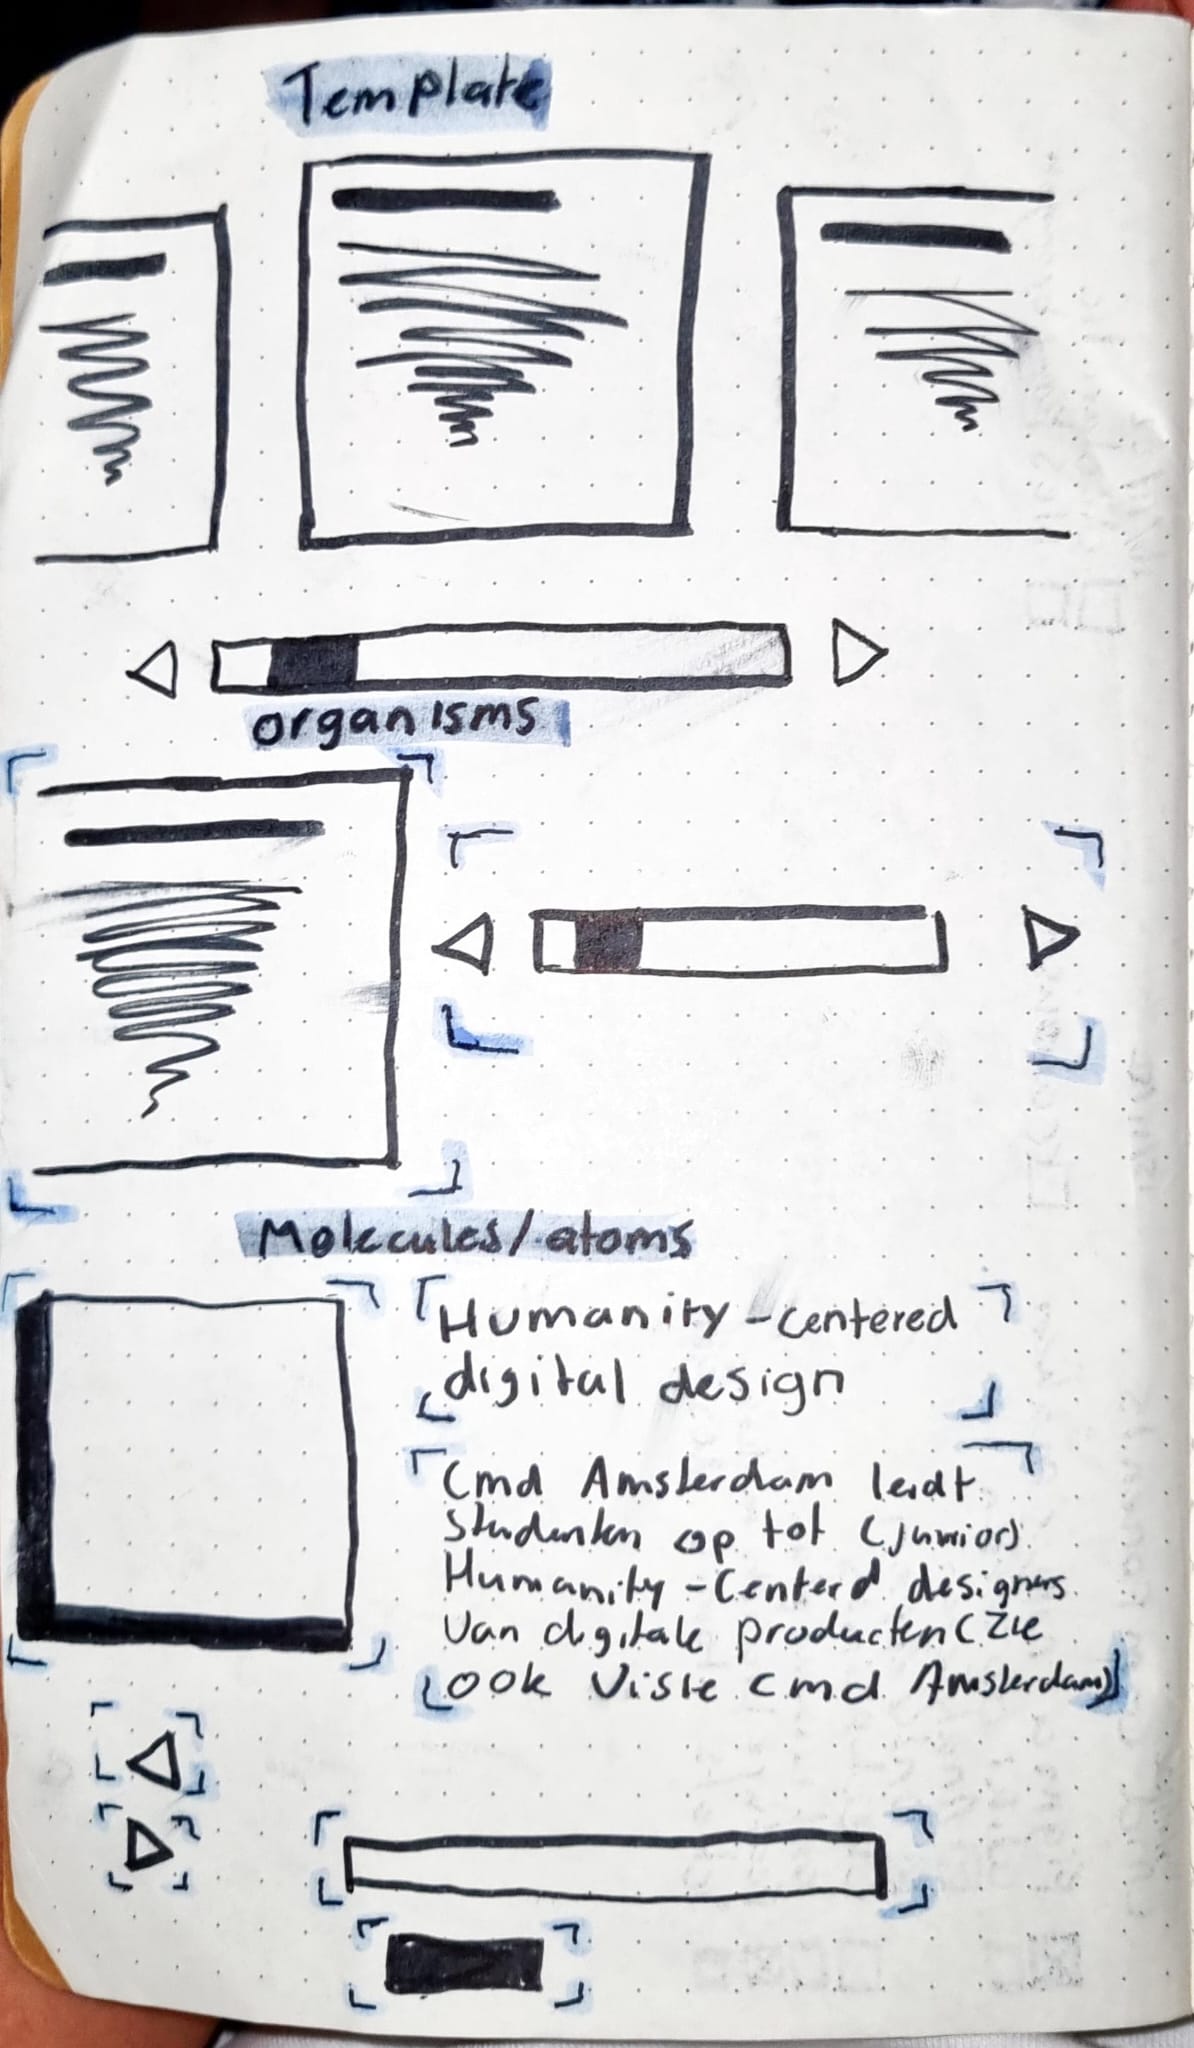 Template
organisms
Molecules/atoms
Humanity-centered
digital design
Cmd Amsterdam leidt
Studenten op tot (junior)
Humanity-Centerd designers
Van digitale producten (zie
ook Visie cmd Amsterdam)